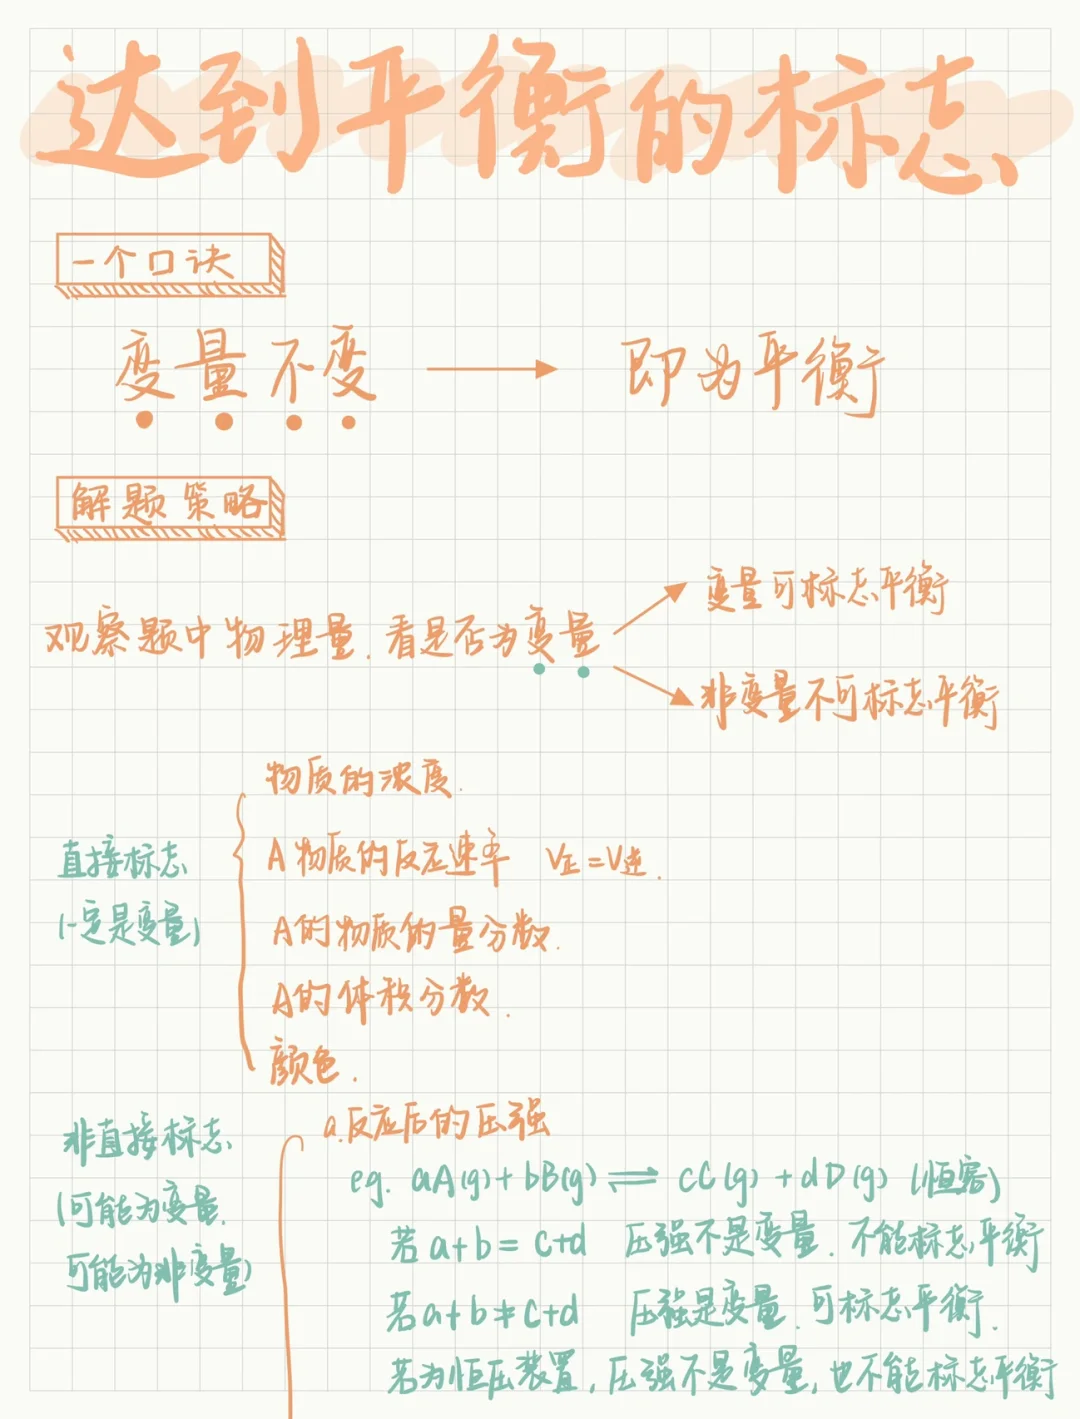 达到平衡的标志
一个口诀
变量不变 → 即为平衡
解题策略
观察题中物理量.看是否为变量
变量可标志平衡
非变量不可标志平衡
直接标志
(一定是变量)
物质的浓度.
A物质的反应速率 V正=V逆.
A的物质的量分数.
A的体积分数.
颜色.
非直接标志
(可能为变量.
可能为非变量)
a.反应后的压强
eg. aA(g)+bB(g)⇌cC(g)+dD(g) (恒容)
若a+b=c+d 压强不是变量.不能标志平衡
若a+b≠c+d 压强是变量.可标志平衡.
若为恒压装置,压强不是变量,也不能标志平衡